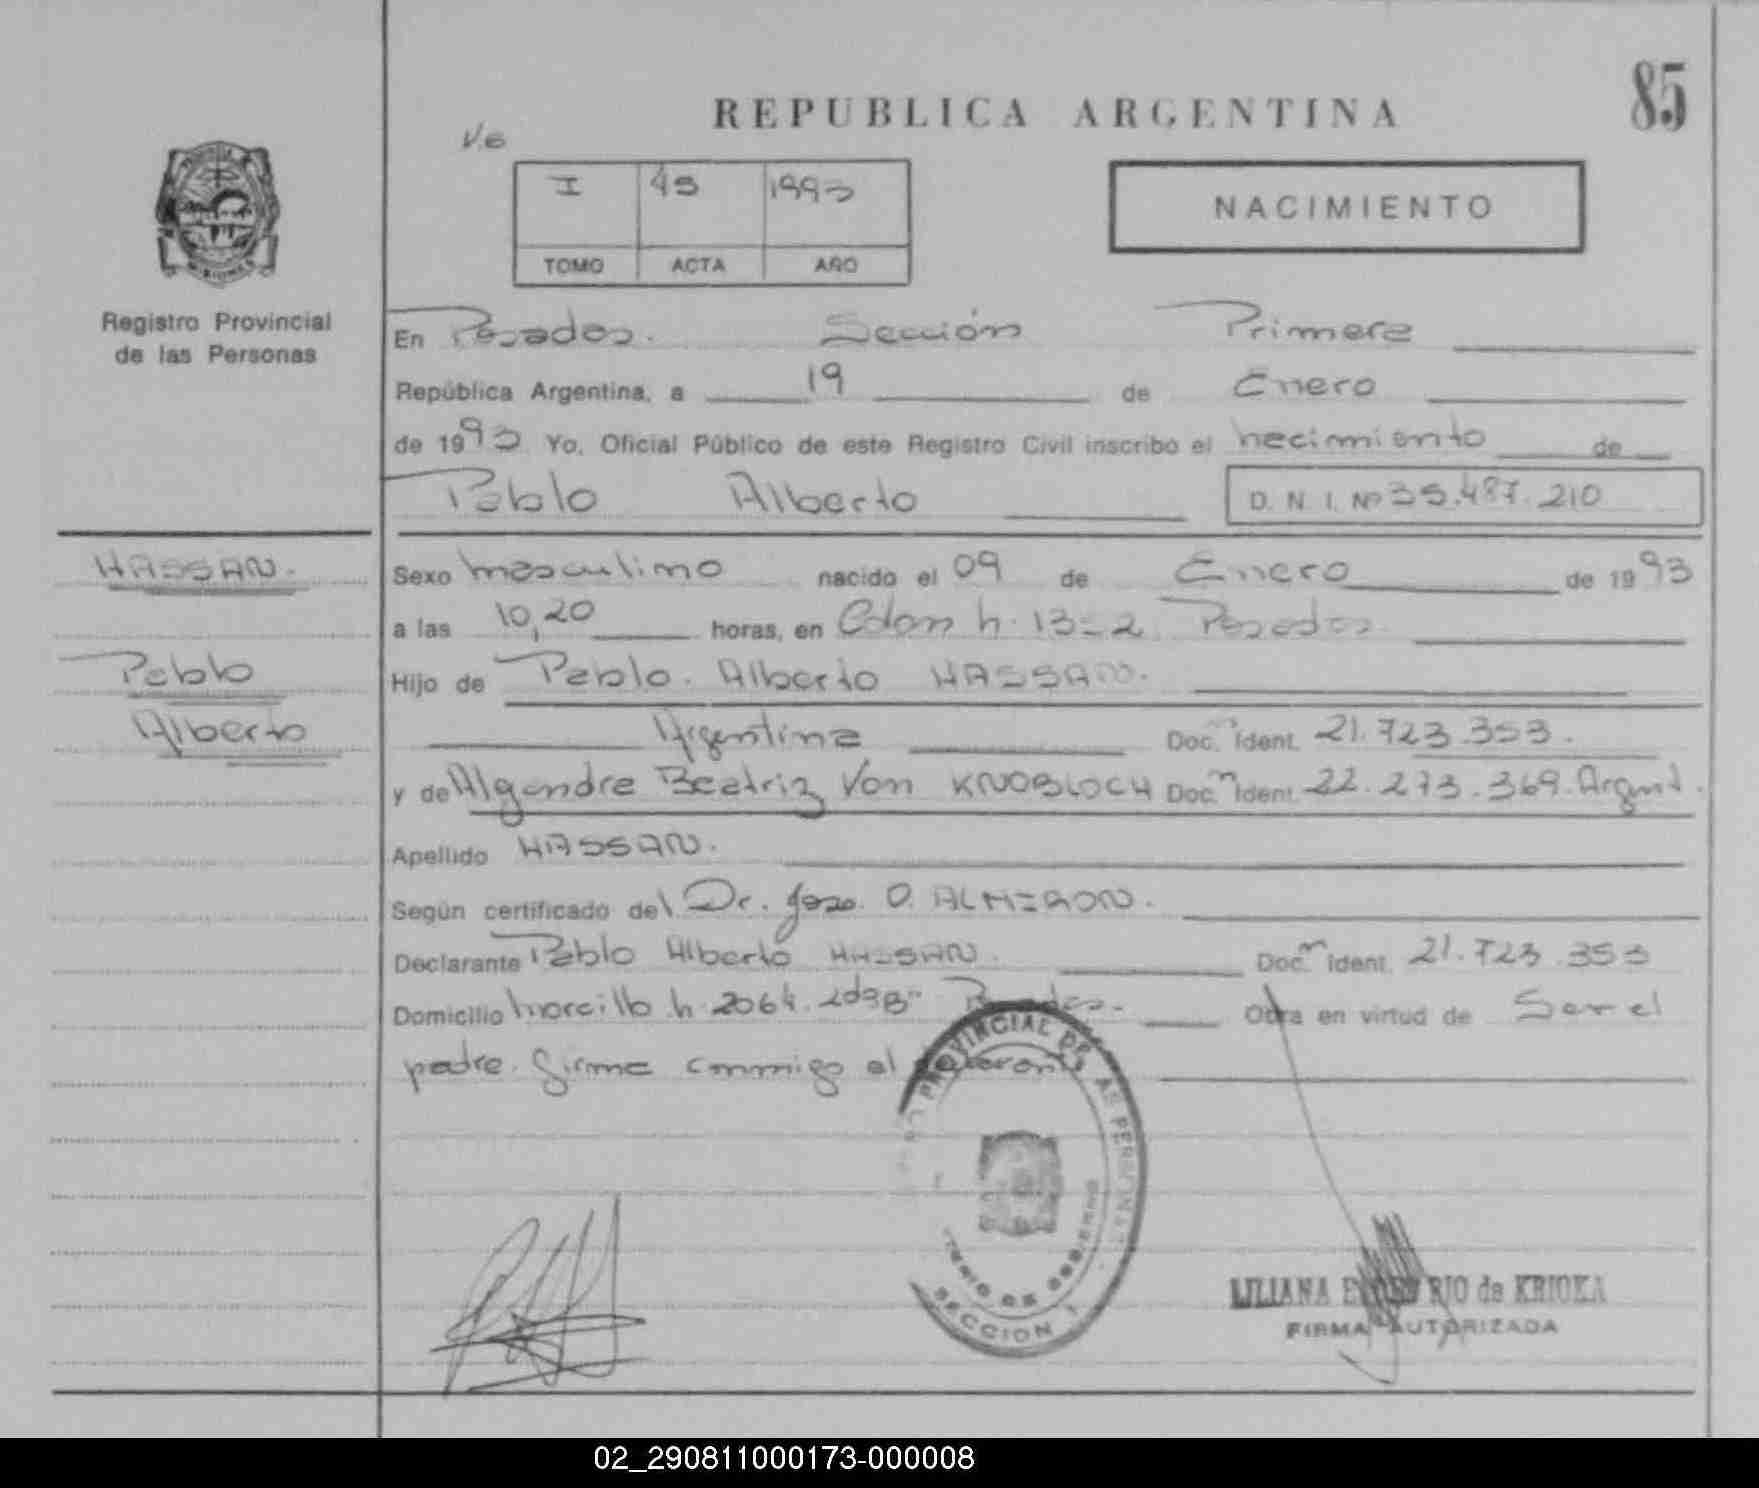 85
REPUBLICA ARGENTINA
V.e
I 45 1993
TOMO ACTA AÑO
NACIMIENTO
Registro Provincial
de las Personas
En Posadas. Sección Primera
República Argentina, a 19 de Enero
de 1993 Yo, Oficial Público de este Registro Civil inscribo el nacimiento de
Pablo Alberto D. N. I. Nº 35.487.210
HASSAN.
Pablo
Alberto
Sexo masculino nacido el 09 de Enero de 1993
a las 10,20 horas, en Colon n. 1352 Posadas.
Hijo de Pablo. Alberto HASSAN.
Argentina Doc. Ident. 21.723.353.
y de Beatriz Von KNOBLOCH Doc. Ident. 22.273.369. Argent.
Apellido HASSAN.
Según certificado del Dr. Jose. O. ALMIRON.
Declarante Pablo Alberto HASSAN. Doc. Ident. 21.723.353
Domicilio n. 2064. Posadas. Obra en virtud de Ser el
padre. Firma conmigo el
PROVINCIAL DE LAS PERSONAS
SECCION 1
LILIANA RIO de KRIOKA
FIRMA AUTORIZADA
02_290811000173-000008